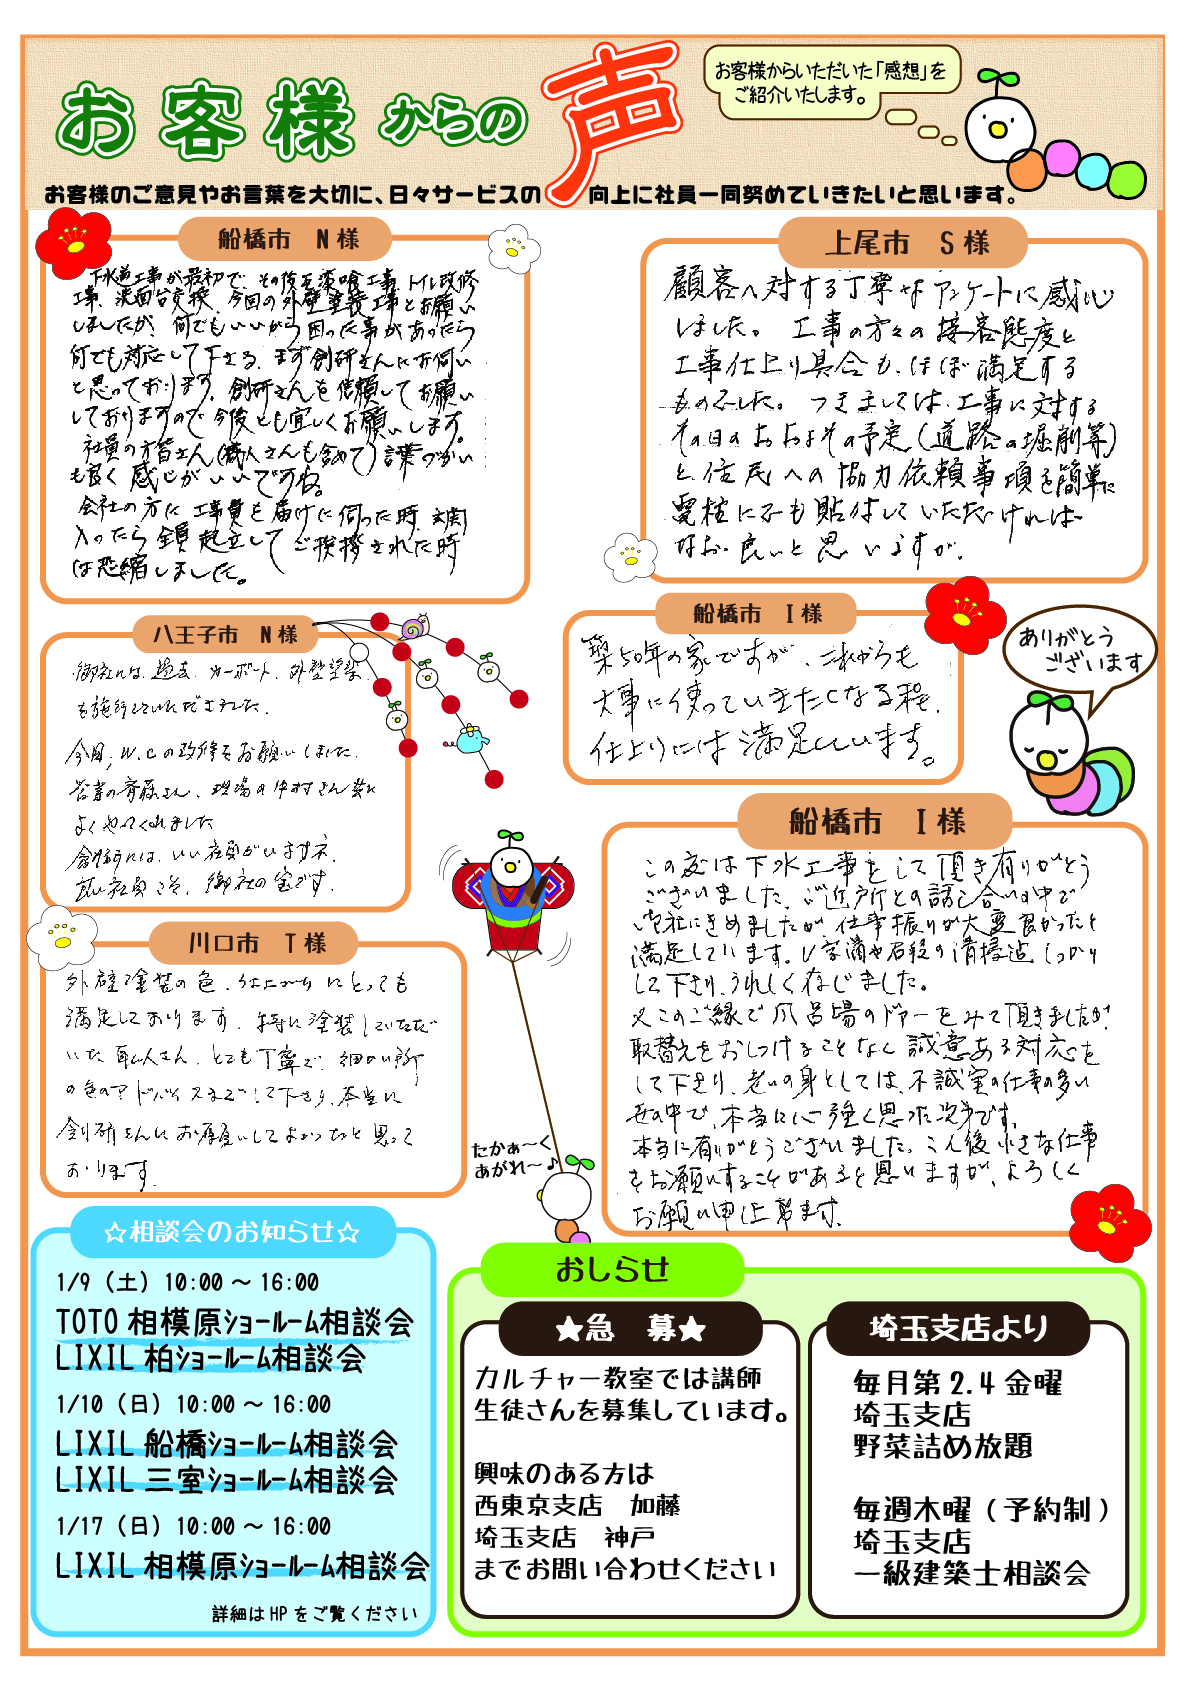 お客様からの声
お客様からいただいた「感想」を
ご紹介いたします。
お客様のご意見やお言葉を大切に、日々サービスの向上に社員一同努めていきたいと思います。
船橋市 N様
下水道工事が最初で、その後瓦漆喰工事、トイレ改修
工事、洗面台交換、今回の外壁塗装工事とお願い
しましたが、何でもいいから困った事があったら
何でも対応して下さる、まず創研さんにお伺い
と思っております。創研さんを信頼してお願い
しておりますので今後とも宜しくお願いします。
社員の方皆さん(職人さんも含めて)言葉づかい
も良く感じがいいですね。
会社の方に工事費を届けに伺った時、玄関
入ったら全員起立してご挨拶された時
は恐縮しました。
上尾市 S様
顧客へ対する丁寧なアンケートに感心
しました。工事の方々の接客態度と
工事仕上り具合も、ほぼ満足する
ものでした。つきましては、工事に対する
その日のおおよその予定(道路の堀削等)
と、住民への協力依頼事項を簡単に
電柱にでも貼付していただければ
なお良いと思いますが、
八王子市 N様
御社には、過去、カーポート、外壁塗装
も施行していただきました。
今回、W.Cの改修をお願いしました。
営業の斉藤さん、現場の中村さん共に
よくやってくれました
創研には、いい社員がいますネ、
良い社員こそ、御社の宝です。
船橋市 I様
築50年の家ですが、これからも
大事に使っていきたくなる程、
仕上りには満足しています。
ありがとう
ございます
船橋市 I様
この度は下水工事をして頂き有りがとう
ございました。ご近所との話し合いの中で
御社にきめましたが、仕事振りが大変良かったと
満足しています。U字溝や石段の清掃迄しっかり
して下さり、うれしく存じました。
又このご縁で風呂場のドアーをみて頂きましたが、
取替えをおしつけることなく誠意ある対応を
して下さり、老いの身としては、不誠実の仕事の多い
世の中で、本当に心強く思った次第です。
本当に有りがとうございました。こん後小さな仕事
をお願いすることがあると思いますが、よろしく
お願い申し上げます。
川口市 T様
外壁塗装の色、仕上がりにとっても
満足しております。特に塗装していただ
いた職人さん、とても丁寧で、細かい所
の色のアドバイスまでして下さり、本当に
創研さんにお願いしてよかったと思って
おります。
たかぁ〜く
あがれ〜♪
☆相談会のお知らせ☆
1/9（土）10:00〜16:00
TOTO相模原ショールーム相談会
LIXIL柏ショールーム相談会
1/10（日）10:00〜16:00
LIXIL船橋ショールーム相談会
LIXIL三室ショールーム相談会
1/17（日）10:00〜16:00
LIXIL相模原ショールーム相談会
詳細はHPをご覧ください
おしらせ
★急 募★
カルチャー教室では講師
生徒さんを募集しています。
興味のある方は
西東京支店 加藤
埼玉支店 神戸
までお問い合わせください
埼玉支店より
毎月第2.4金曜
埼玉支店
野菜詰め放題
毎週木曜（予約制）
埼玉支店
一級建築士相談会